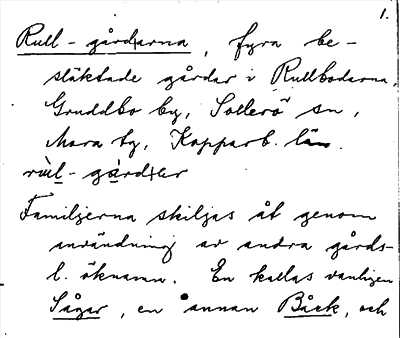 1.
Rull-gårdarna, fyra be-
släktade gårdar i Rullbodarna,
Gruddbo by, Sollerö sn,
Mora tg, Kopparb. län.
Familjerna skiljas åt genom
användning av andra gårds-
l. öknamn. En kallas vanligen
Sågar, en annan Båck, och